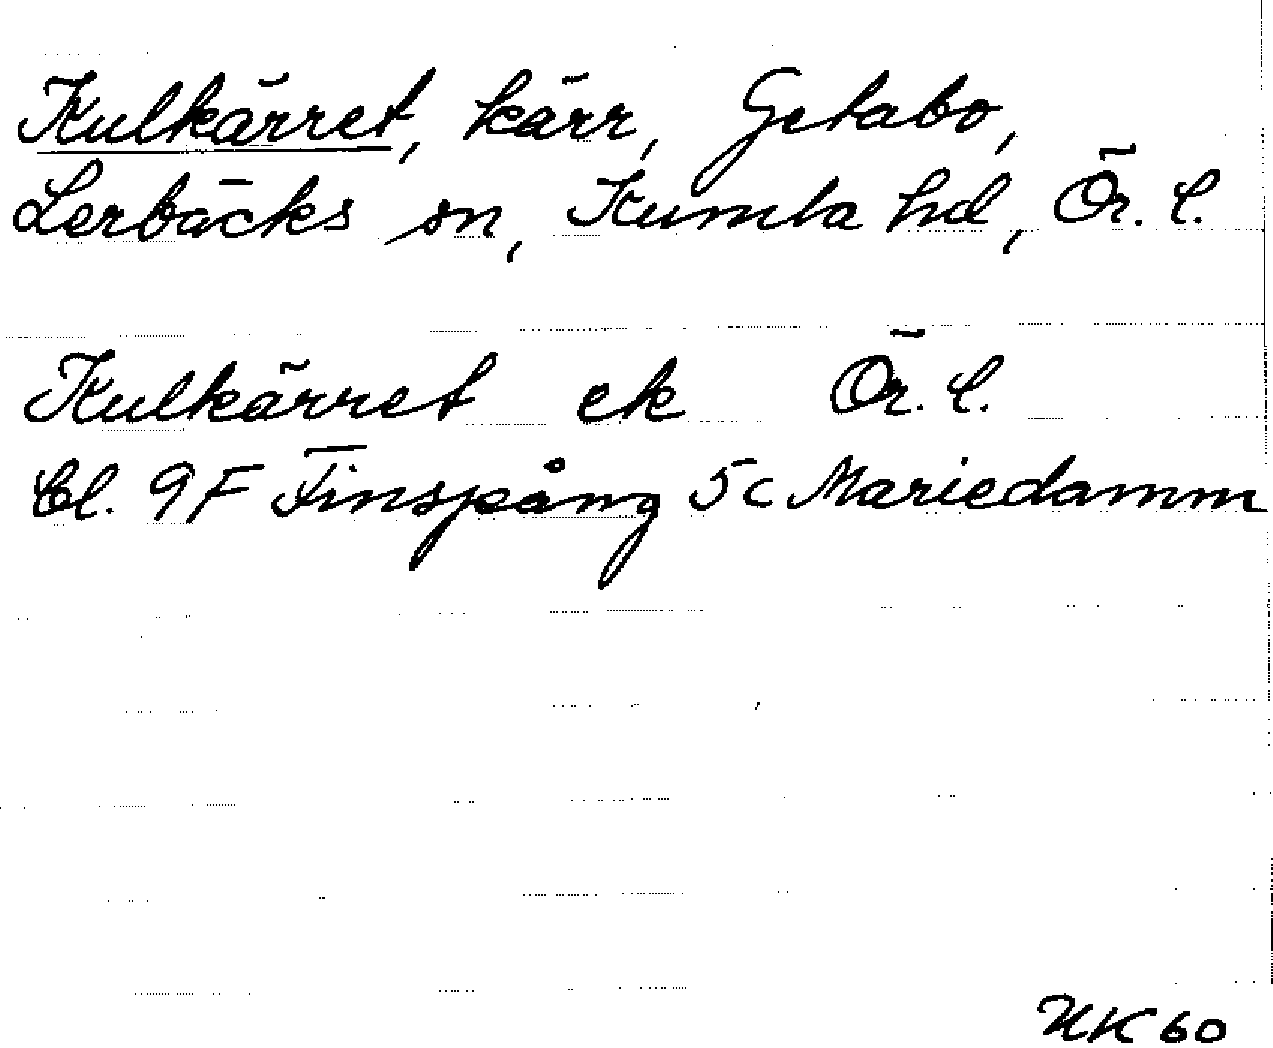 Kulkärret, kärr, Getabo,
Lerbäcks sn, Kumla hd, Ör. l.
Kulkärret ek Ör. l.
Bl. 9F Finspång 5c Mariedamm
HK 60